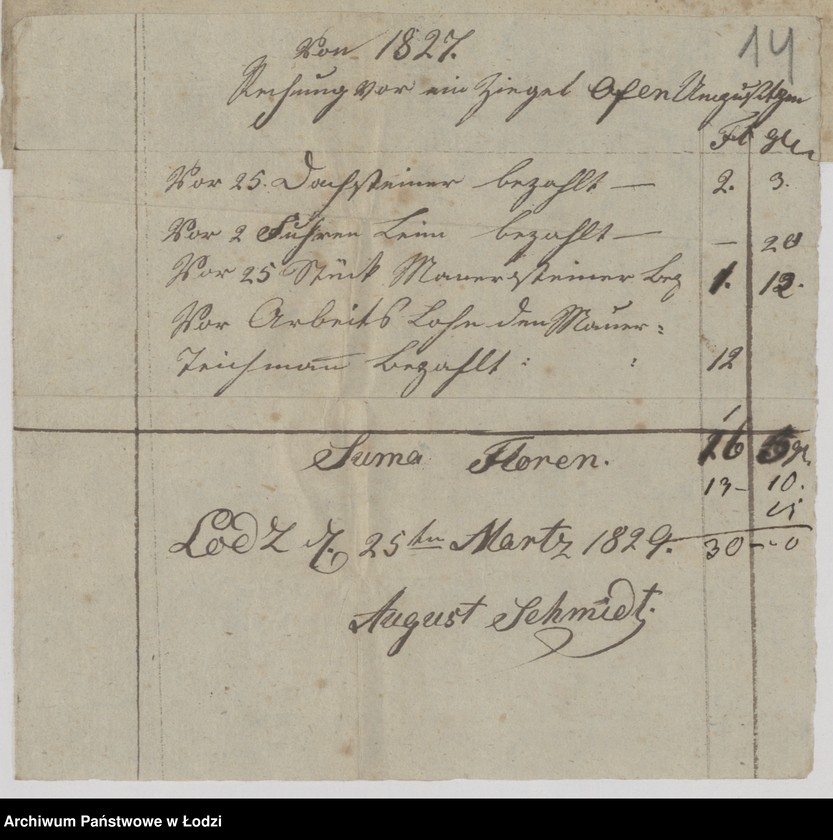 14
Von 1827.
Rechung vor ein Ziegel Ofen Umzusetzen
Fl gr
Vor 25. Dachsteiner bezahlt — 2. 3.
Vor 2 Fuhren Leim bezahlt — — 20
Vor 25 Stück Mauersteiner bez 1. 12.
Vor Arbeits Lohn den Mauer=
Teichmann bezahlt : : 12
Suma Floren. 16 5 gr.
13 – 10.
15
Lodz d. 25ten Martz 1829. 30 – 0
August Schmidt.
Archiwum Państwowe w Łodzi